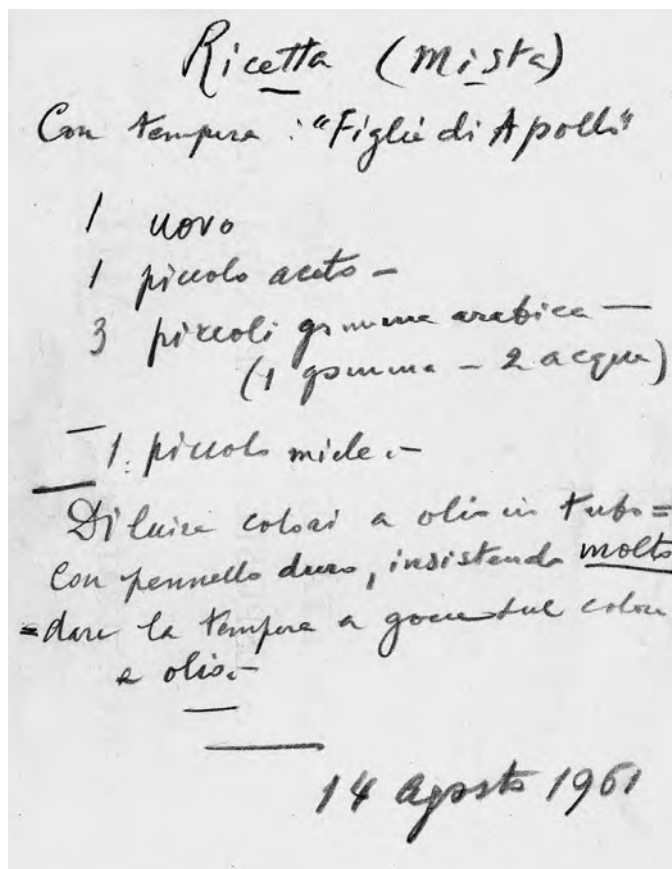 Ricetta (mista)
Con tempera : "Figli di Apollo"
1 uovo
1 piccolo aceto –
3 piccoli gomma arabica —
(1 gomma – 2 acqua)
– 1 piccolo miele.–
Diluire colori a olio in tubo =
con pennello duro, insistendo molto
= dare la tempera a gocce sul colore
a olio.–
14 agosto 1961